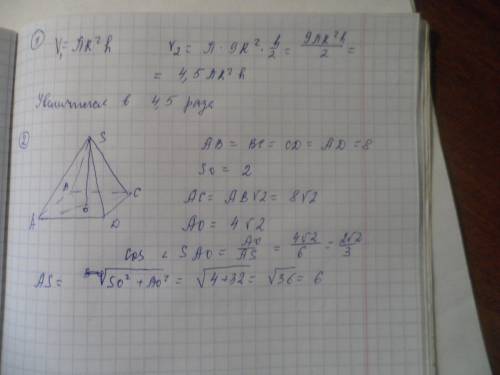 ① V₁ = ПR²h   V₂ = П · 9R² · h/2 = 9ПR²h/2 =
= 4,5 ПR²h
Увеличится в 4,5 раза
②
S
B C
O
A D
AB = BC = CD = AD = 8
SO = 2
AC = AB√2 = 8√2
AO = 4√2
cos ∠ SAO = AO/AS = 4√2/6 = 2√2/3
AS = √SO² + AO² = √4+32 = √36 = 6